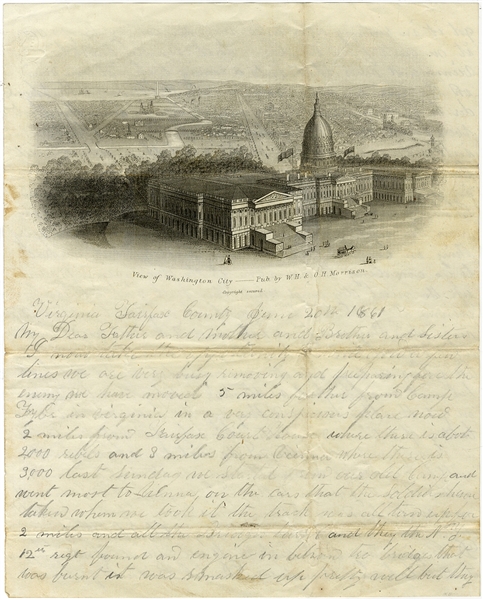 View of Washington City — Pub. by W.H. & O.H. Morrison
Copyright secured
Virginia Fairfax County June 20th 1861
My Dear Father and Mother and Brother and Sisters
I now take the
lines we are very busy removing and preparing
enemy we have moved 5 miles from Camp
in virginia in a very place now
2 miles from Fairfax Court house where there is abot
2000 rebels and 3 miles from where there is
3000 last Sunday we our old Camp and
went most to on the cars that the soldiers have
taken when we took it the track was all torn up
2 miles and all the and they the N. Y.
12th regt found an engine in between two bridges that
was burnt it was smashed up pretty well but they